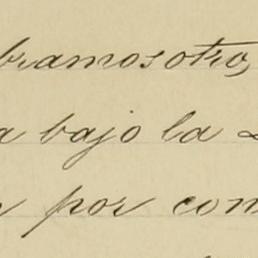 bramos otro,
a bajo la
por com